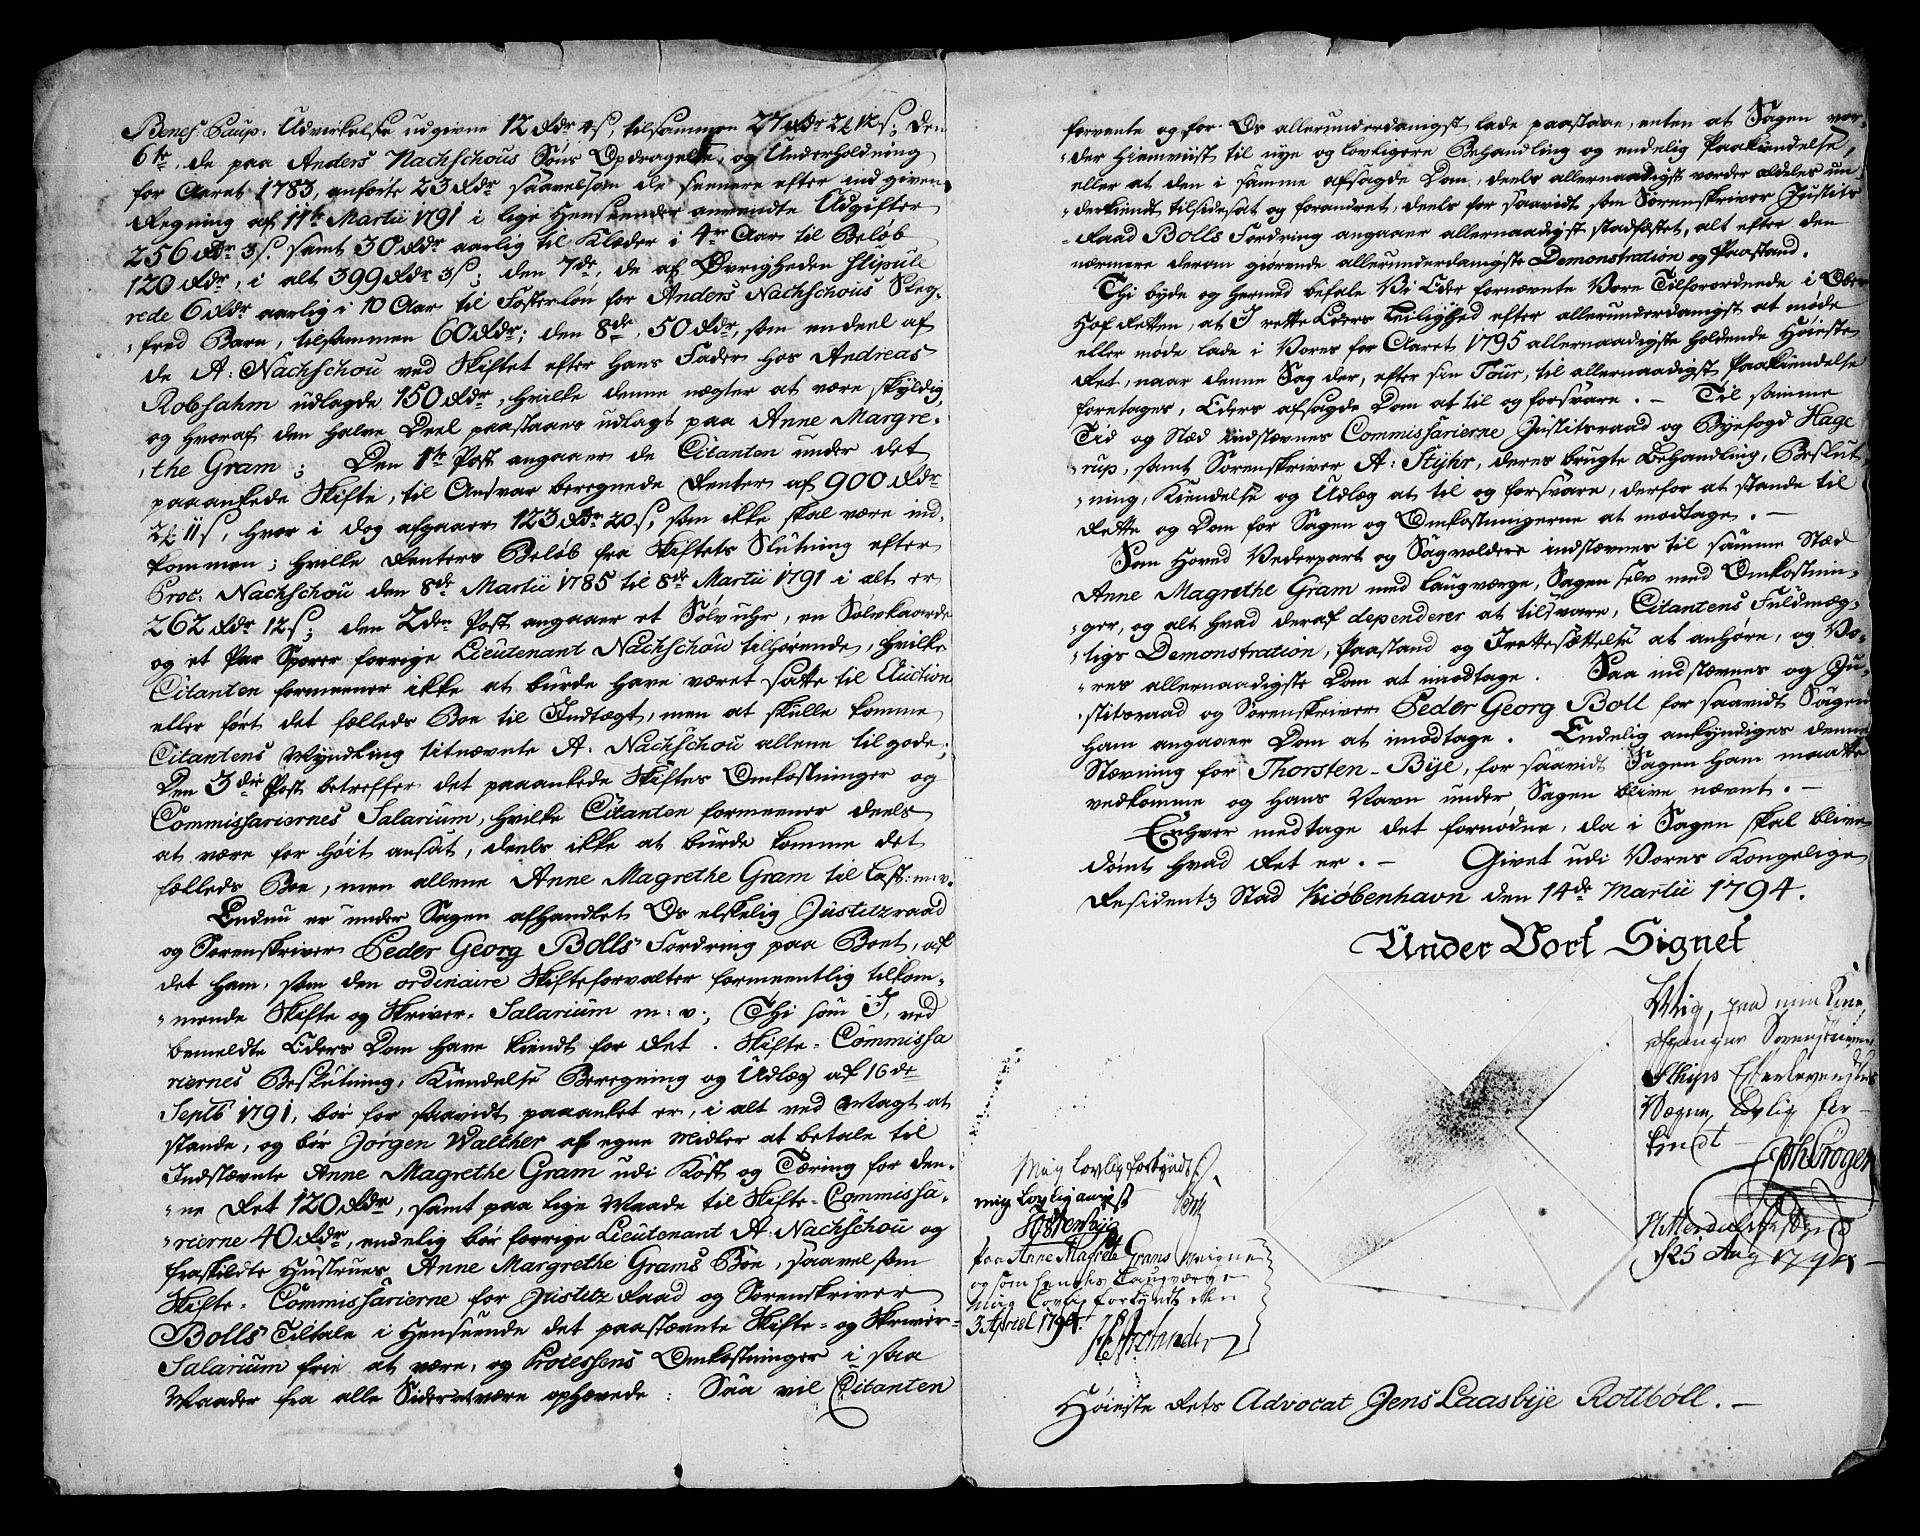 Benef: Paup: Udvirkelse udgivne 12 Rdr 4 s, tilsammen 27 Rdr 2 12 s; den
6te, de paa Anders Nachschous Söns Opdragelse og Underholdning
for Aaret 1783, anförte 23 Rdr saavelsom de seenere efter indgiven
Regning af 11te Martii 1791 i lige Henseender anvendte Udgifter
256 Rdr 3 s. samt 30 Rdr aarlig til Klæder i 4r Aar til Beløb
120 Rdr, i alt 399 Rdr 3 s; den 7de, de af Øvrigheden stipule
rede 6 Rdr aarlig i 10 Aar til Fosterløn for Anders Nachschous Sleg-
fred Barn, tilsammen 60 Rdr; den 8de, 50 Rdr, som en deel af
de A: Nachschou ved Skiftet efter hans Fader hos Andreas
Robsahm udlagde 150 Rdr, hvilke denne nægter at være skyldig,
og hvoraf den halve Deel paastaaes udlagt paa Anne Margre-
the Gram; Den 1te Post angaaer de Citanten under det
paaankede Skifte, til Ansvar beregnede Renter af 900 Rdr
2 11 s, hvor i dog afgaaer 123 Rdr 20 s, som ikke skal være ind-
kommen; hvilke Renters Beløb fra Skiftets Slutning efter
Proc: Nachschou den 8de Martii 1785 til 8de Martii 1791 i alt er
262 Rdr 12 s; den 2den Post angaaer et Sølv uhr, en Sølvkaarde
og et Par Sporer forrige Lieutenant Nachschou tilhørende, hvilke
Citanten formeener ikke at burde have været satte til Auction
eller ført det fælleds Boe til Indtægt, men at skulle komme
Citantens Myndling bitnævnte A: Nachschou allene til gode;
Den 3die Post betreffer det paaankede Skiftes Omkostninger og
Commissariernes Salarium, hvilke Citanten formeener deels
at være for høit ansat, deels ikke at burde komme det
fælleds Boe, men allene Anne Magrethe Gram til Last: m: v.
Endnu er under Sagen afhandlet Os elskelig Justitzraad
og Sorenskriver Peder Georg Bolls Fordring paa Boet, af
det ham, som den ordinaire Skifteforvalter formeentlig tilkom-
mende Skifte og Skriver-Salarium m: v:, Thi som I, ved
bemeldte Eders Dom have kiendt for Ret. Skifte-Commissa
riernes Beslutning, Kiendelse Beregning og Udlæg af 16de
Septb 1791, bør for saavidt paaanket er, i alt ved Magt at
stande, og bør Jørgen Walther af egne Midler at betale til
Indstævnte Anne Magrethe Gram udi Kost og Tæring for den-
ne Ret 120 Rdr, samt paa lige Maade til Skifte-Commissa-
rierne 40 Rdr, endelig bør forrige Lieutenant A: Nachschou og
fraskildte Hustrues Anne Margrethe Grams Boe, saavelsom
Skifte-Commissarierne for Justitz Raad og Sorenskriver
Bolls Tiltale i Henseende det paastævnte Skifte- og Skriver-
Salarium frie at være, og Processens Omkostninger i saa
Maader fra alle Sider at være ophævede: Saa vil Citanten
forvente og for Os allerunderdanigst lade paastaae, enten at Sagen vor-
der hiemviist til nye og lovligere Behandling og endelig Paakiendelse,
eller at den i samme afsagde Dom, deels allernaadigst vorder aldeles un-
derkiendt tilsidesat og forandret, deels for saavidt som Sorenskriver Justits
Raad Bolls Fordring angaaer allernaadigst stadfæstet, alt efter den
nærmere derom giørende allerunderdanigste Demonstration og Paastand.
Thi byde og hermed befale Vi Eder fornævnte Vore Tilforordnede i Over
Hof Retten, at I rette Eders Leilighed efter allerunderdanigst at møde
eller møde lade i Vores for Aaret 1795 allernaadigste holdende Høieste
Ret, naar denne Sag der, efter sin Tour, til allernaadigst Paakiendelse
foretages, Eders afsagde Dom at til og forsvare. - Til samme
Tid og Stæd indstævnes Commissarierne Justitsraad og Byefogd Hage
rup, samt Sorenskriver A: Stÿhr, deres brugte Behandling, Beslut-
ning, Kiendelse og Udlæg at til og forsvare, derfor at stande til
Rette og Dom for Sagen og Omkostningerne at modtage. -
Som Hoved Vederpart og Sagvoldere indstævnes til samme Stæd
Anne Magrethe Gram med Laugværge, Sagen selv med Omkostnin-
ger, og alt hvad deraf dependerer at tilsvare, Citantens Fuldmæg-
tigs Demonstration, Paastand og Irettesættelse at anhøre, og Vo-
res allernaadigste Dom at imodtage. Saa indstævnes og Ju-
stitsraad og Sorenskriver Peder Georg Boll for saavidt Sagen
ham angaaer Dom at imodtage. Endelig ankyndiges denne
Stævning for Thorsten-Bÿe, for saavidt Sagen ham maatte
vedkomme og hans Navn under Sagen blive nævnt. -
Enhver medtage det fornødne, da i Sagen skal blive
dømt hvad Ret er. - Givet udi Vores Kongelige
Residentz Stad Kiøbenhavn den 14de Martii 1794.
Under Vort Signet
Mig, paa min
afgangne Sorenskriver
Efterleverskes
Vegne, Lovlig for-
kyndt
25 Aug 1794
Mig Lovlig forkyndt
mig Lovlig
Boll
paa Anne Magrete Grams Veigne
og som hendes Laugværge
Mig Lovlig forkyndt den
3 Apriel 1794.
Høieste Rets Advocat Jens Laasbye Rottböll. -